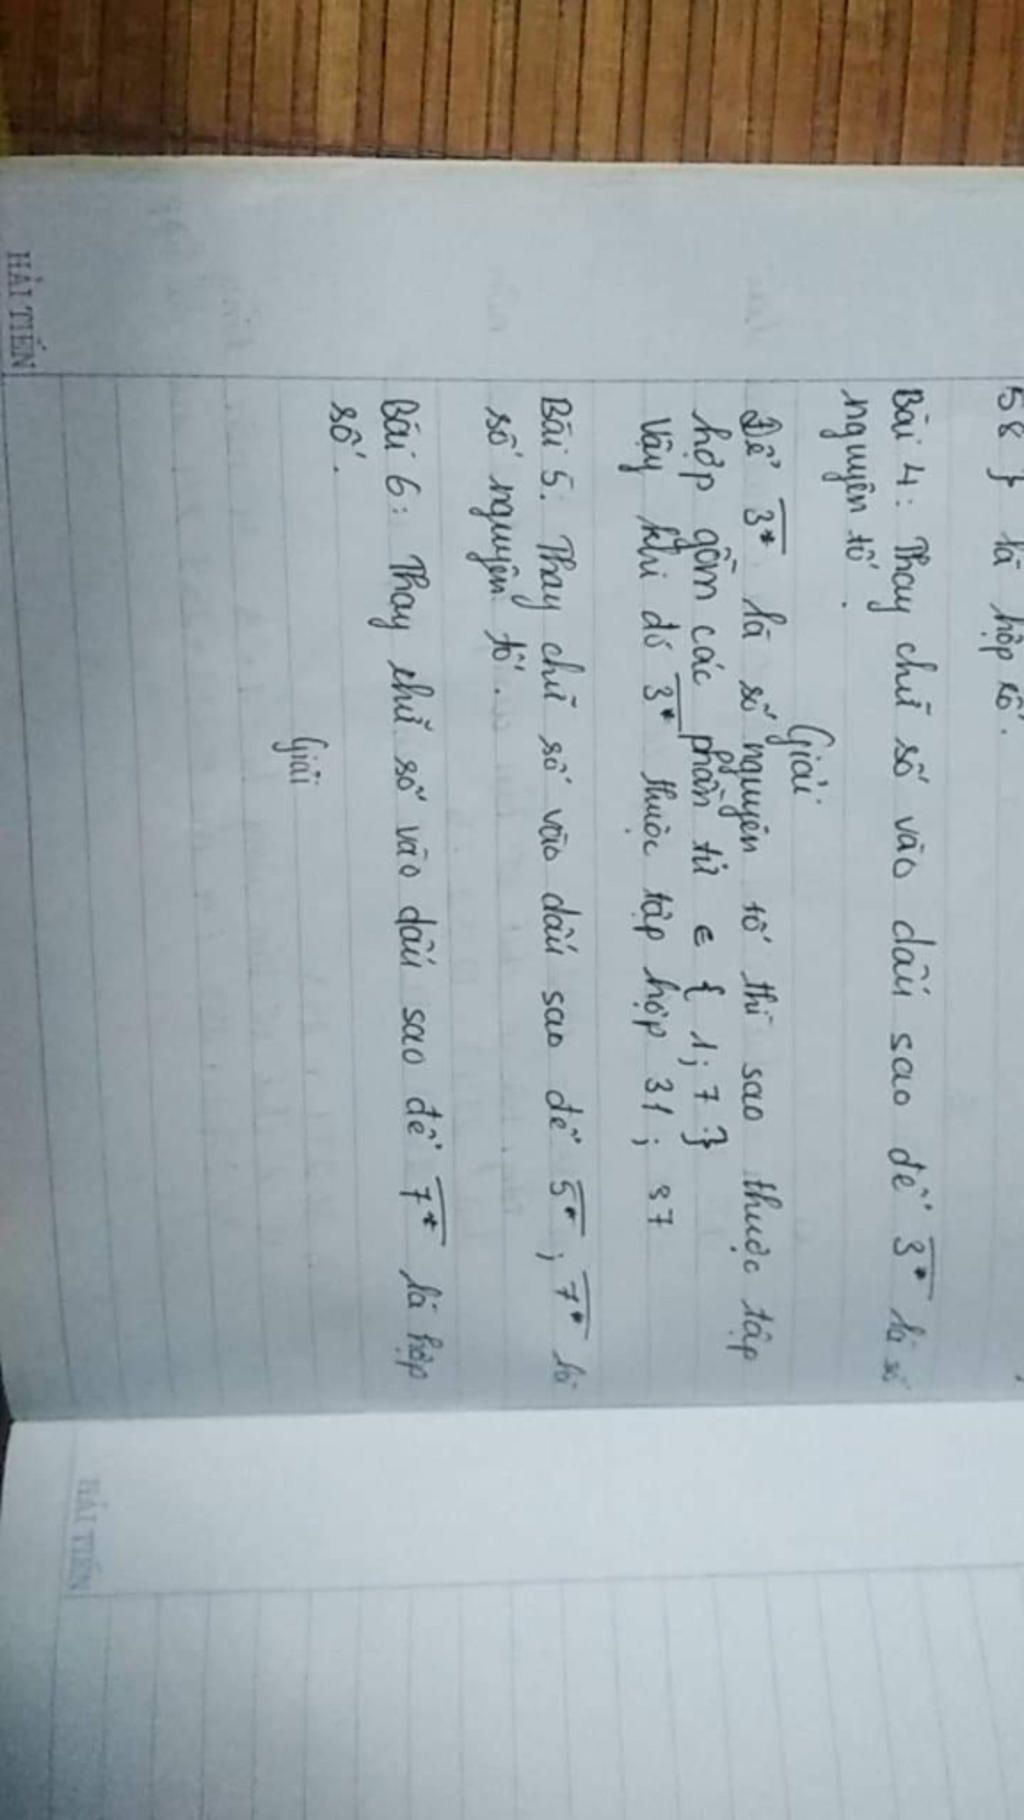 58 } là hợp số.
Bài 4: Thay chữ số vào dấu sao để 3* là số
nguyên tố.
Giải
Để 3* là số nguyên tố thì sao thuộc tập
hợp gồm các phần tử ∈ { 1; 7 }
Vậy khi đó 3* thuộc tập hợp 31; 37
Bài 5: Thay chữ số vào dấu sao để 5*; 7* là
số nguyên tố.
Bài 6: Thay chữ số vào dấu sao để 7* là hợp
số.
Giải
HẢI TIẾN
HẢI TIẾN